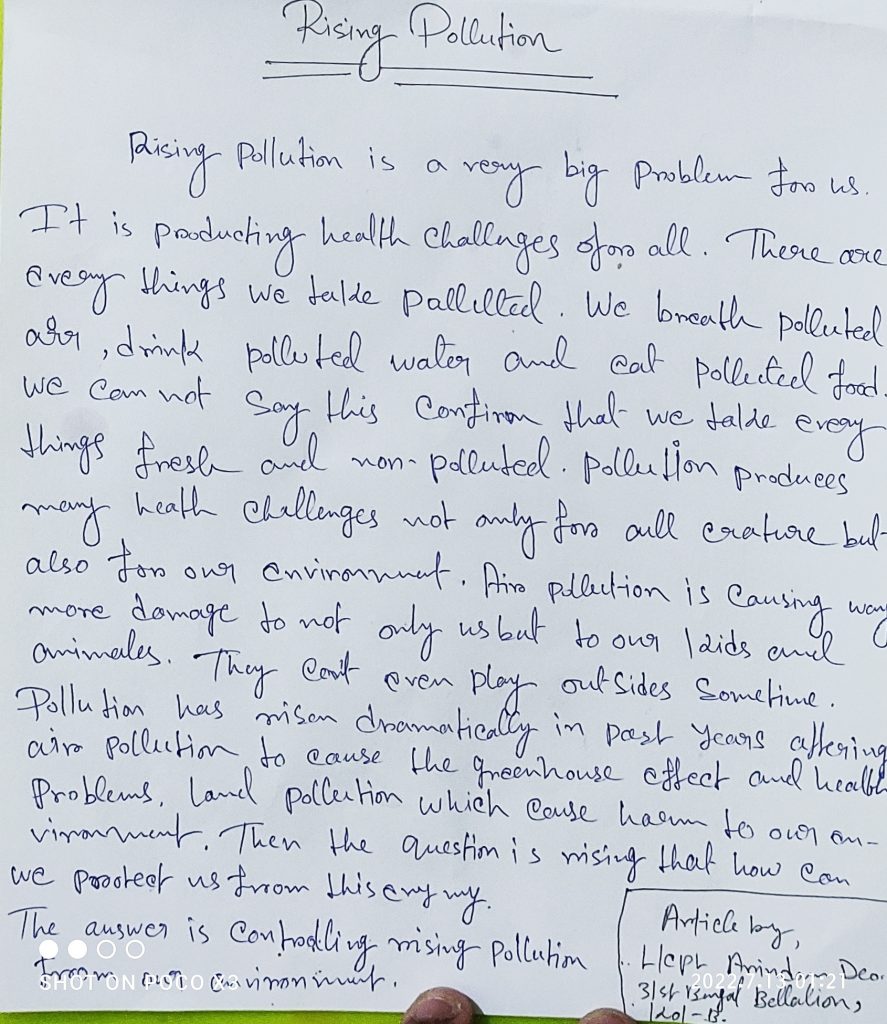 Rising Pollution
Rising Pollution is a very big problem for us.
It is producting health challnges for all. There are
every things we take pallilted. We breath polluted
air, drink polluted water and eat pollected food.
we can not say this confirm that we take every
things fresh and non-polluted. pollution produces
many heath challenges not only for all crature but
also for our environment. Air pollution is causing way
more damage to not only us but to our kids and
animales. They can't even play outsides sometime.
Pollution has risen dramatically in past years altering
air pollution to cause the greenhouse effect and health
problems. Land pollution which cause harm to our en-
vironment. Then the question is rising that how can
we prootect us from this enymy.
The answer is controlling rising pollution
from our environment.
Article by,
L/cpl Arindam Deo.
31st Bengal Battalion,
SHOT ON POCO X3
2022.7.13 01:21